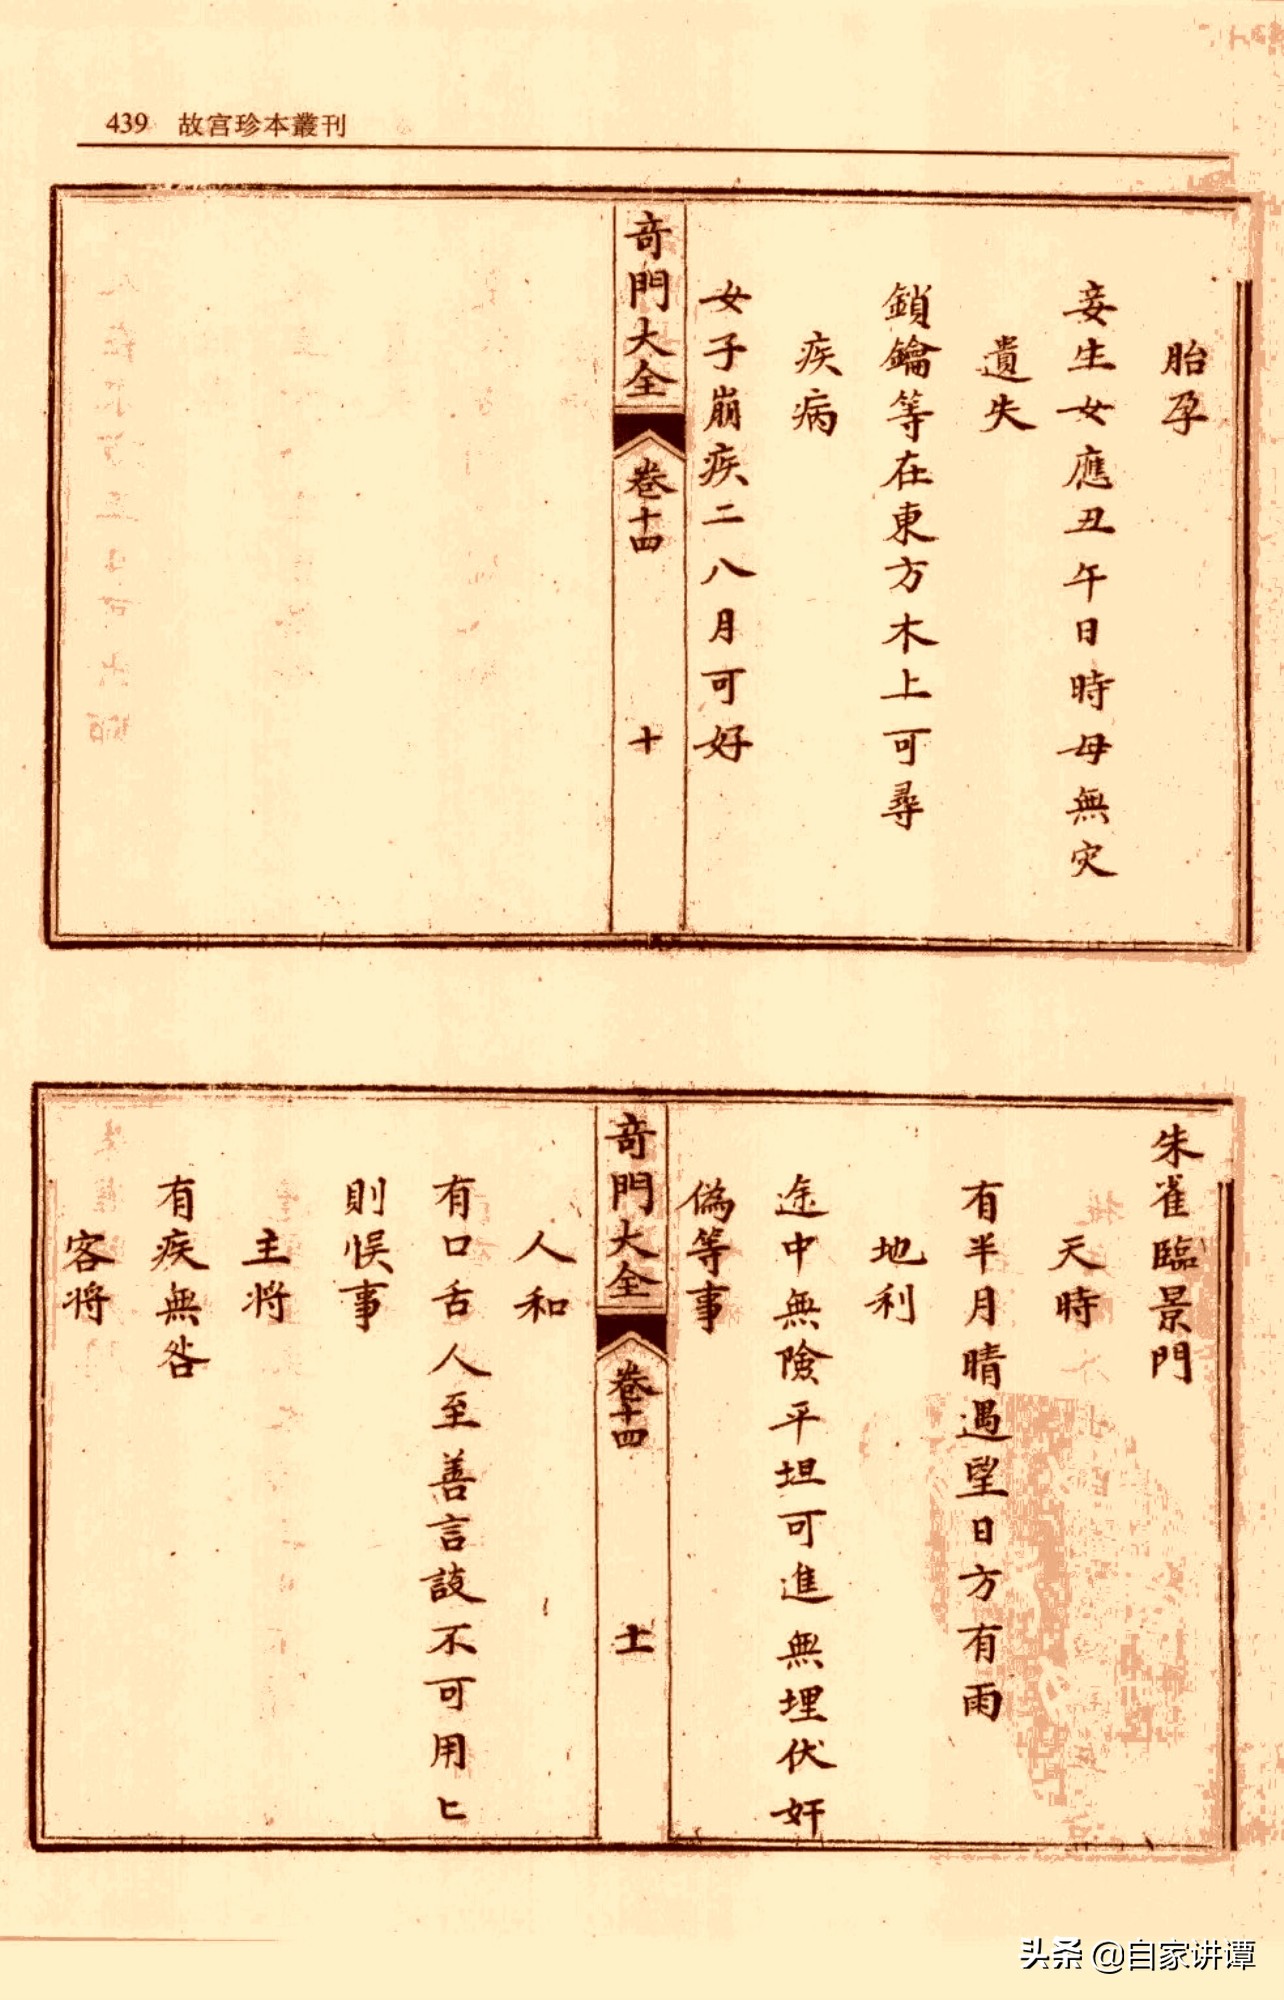 439 故宮珍本叢刊
胎孕
妾生女應丑午日時母無灾
遺失
鎖鑰等在東方木上可尋
疾病
女子崩疾二八月可好
奇門大全 卷十四 十
朱雀臨景門
天時
有半月晴遇望日方有雨
地利
途中無險平坦可進無埋伏奸
偽等事
奇門大全 卷十四 十一
人和
有口舌人至善言談不可用匕
則悞事
主將
有疾無咎
客將
头条 @自家讲谭